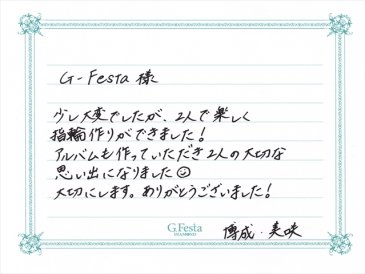 G-Festa 様
少し大変でしたが、2人で楽しく
指輪作りができました！
アルバムも作っていただき2人の大切な
思い出になりました☺
大切にします。ありがとうございました！
G.Festa
博成・美咲